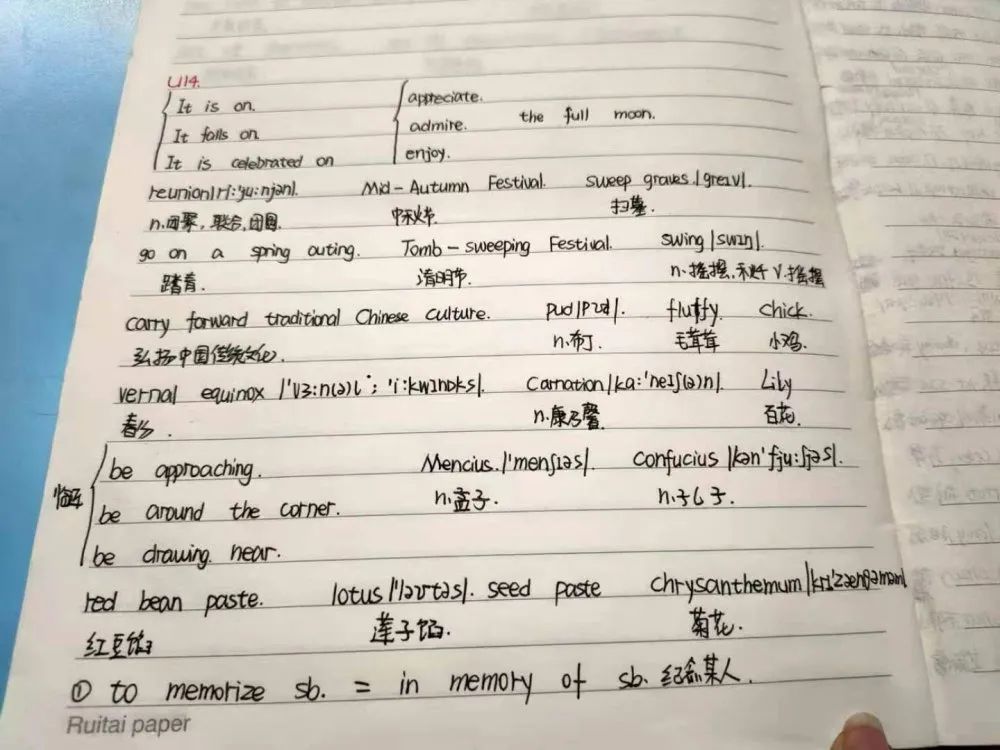 U14.
It is on. appreciate.
It falls on. admire. the full moon.
It is celebrated on enjoy.
reunion |ri:'ju:njən|. Mid-Autumn Festival. sweep graves. |greɪv|.
n.团聚,联合,团圆. 中秋节. 扫墓.
go on a spring outing. Tomb-sweeping Festival. swing |swɪn|.
踏青. 清明节. n.摇摆,秋千 v.摇摆
carry forward traditional Chinese culture. pud |pʊd|. fluffy. chick.
弘扬中国传统文化. n.布丁. 毛茸茸 小鸡.
vernal equinox |'vɜ:n(ə)l ; 'i:kwɪnɒks|. Carnation |ka:'neɪʃ(ə)n|. Lily
春分. n.康乃馨. 百花.
be approaching. Mencius. |'menʃɪəs|. Confucius |kən'fju:ʃəs|.
临近 be around the corner. n.孟子. n.孔子.
be drawing near.
red bean paste. lotus |'ləʊtəs|. seed paste chrysanthemum |krɪ'zænθəməm|
红豆馅 莲子馅. 菊花.
① to memorize sb. = in memory of sb. 纪念某人.
Ruitai paper